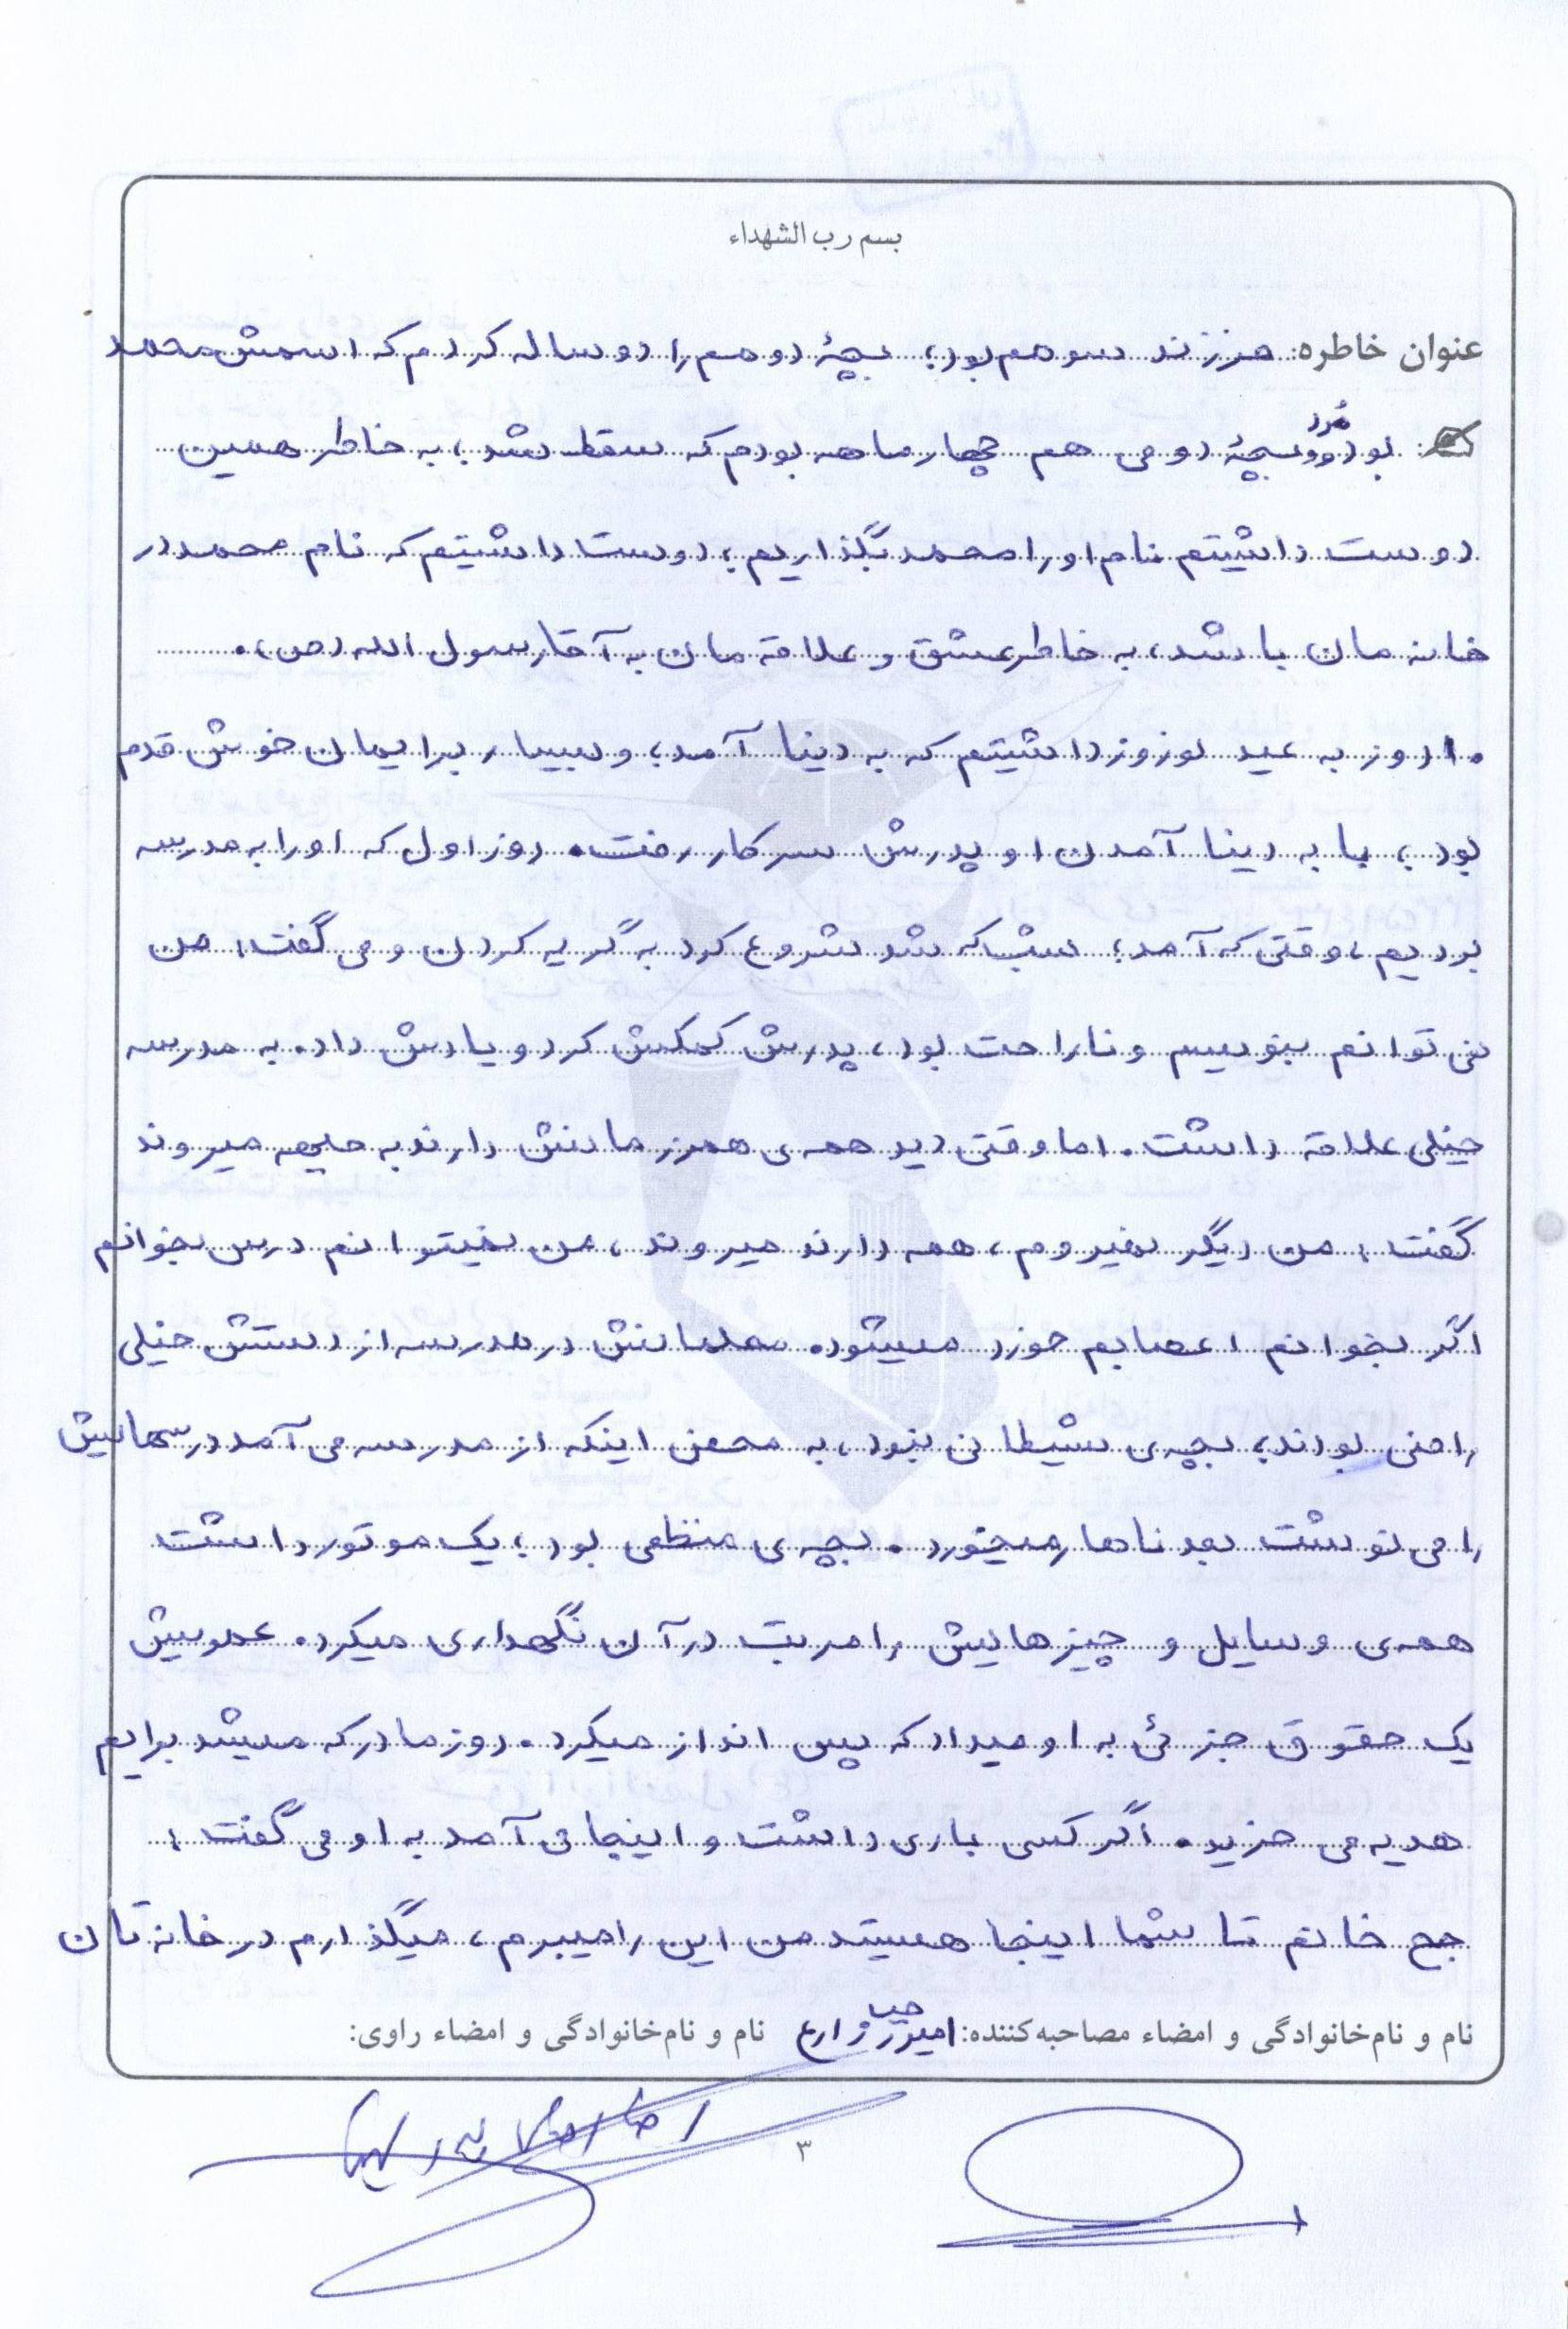 بسم رب الشهداء
عنوان خاطره: فرزند سومم بود؛ بچهٔ دومم را دو ساله کردم که اسمش محمد
بود مُرد و بچهٔ دومی هم چهار ماهه بودم که سقط شد، به خاطر همین
دوست داشتیم نام او را محمد بگذاریم؛ دوست داشتیم که نام محمد در
خانه مان باشد، به خاطر عشق و علاقه مان به آقا رسول الله (ص).
۱۰ روز به عید نوروز داشتیم که به دنیا آمد؛ و بسیار برایمان خوش قدم
بود؛ با به دنیا آمدن او پدرش سر کار رفت. روز اول که او را به مدرسه
بردیم، وقتی که آمد؛ شب که شد شروع کرد به گریه کردن و می گفت: من
نمی توانم بنویسم و ناراحت بود، پدرش کمکش کرد و یادش داد. به مدرسه
خیلی علاقه داشت. اما وقتی دید همه ی همرزمانش دارند به جبهه میروند
گفت: من دیگر نمیروم، همه دارند میروند، من نمیتوانم درس بخوانم
اگر بخوانم اعصابم خورد میشود. معلمانش در مدرسه از دستش خیلی
راضی بودند؛ بچه ی شیطانی نبود، به محض اینکه از مدرسه می آمد درسهایش
را می نوشت بعد ناهار میخورد. بچه ی منظمی بود؛ یک موتور داشت
همه ی وسایل و چیزهایش را مرتب در آن نگهداری میکرد. عمویش
یک حقوق جزئی به او میداد که پس انداز میکرد. روز مادر که میشد برایم
هدیه می خرید. اگر کسی باری داشت و اینجا می آمد به او می گفت:
حج خانم تا شما اینجا هستید من این را میبرم، میگذارم در خانه تان
نام و نام‌خانوادگی و امضاء مصاحبه‌کننده: زارع نام و نام‌خانوادگی و امضاء راوی:
۳